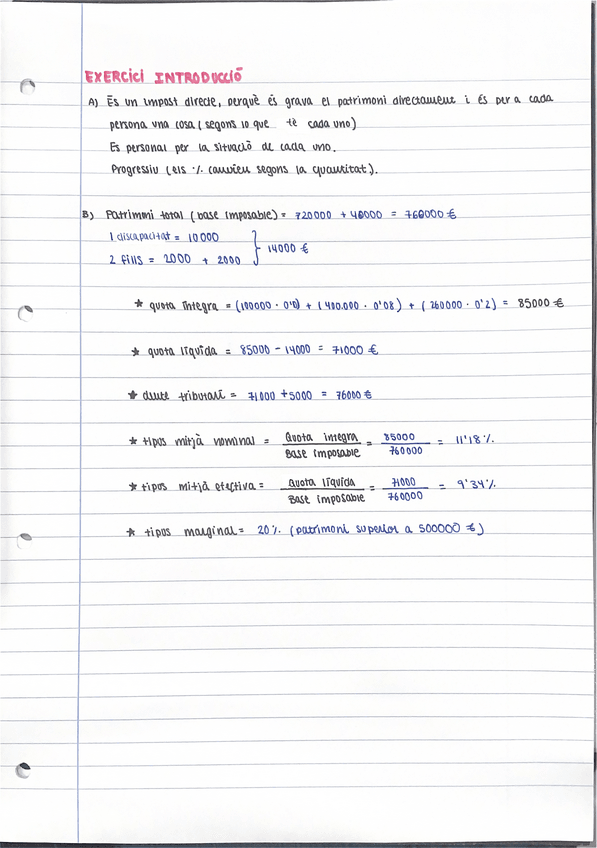 EXERCICI INTRODUCCIÓ
A) És un impost directe, perquè és grava el patrimoni directament i és per a cada
persona una cosa (segons lo que té cada uno)
Es personal per la situació de cada uno.
Progressiu (els % canvien segons la quantitat).
B) Patrimoni total (base imposable) = 720000 + 40000 = 760000 €
1 discapacitat = 10000
2 fills = 2000 + 2000 } 14000 €
* quota íntegra = (100000 · 0'01) + (400.000 · 0'08) + (260000 · 0'2) = 85000 €
* quota líquida = 85000 - 14000 = 71000 €
* deute tributari = 71000 + 5000 = 76000 €
* tipus mitjà nominal = Quota integra / Base Imposable = 85000 / 760000 = 11'18%
* tipus mitjà efectiva = Quota líquida / Base imposable = 71000 / 760000 = 9'34%
* tipus marginal = 20% (patrimoni superior a 500000 €)